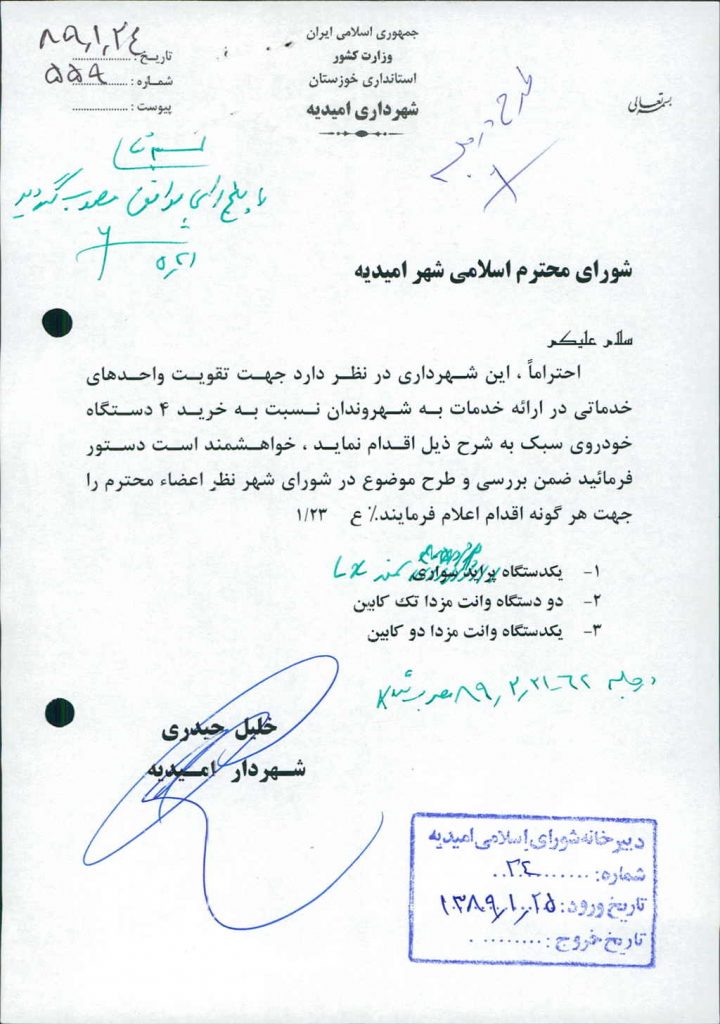 بسمه تعالی
جمهوری اسلامی ایران
وزارت کشور
استانداری خوزستان
شهرداری امیدیه
تاریخ : ۸۹٫۱٫۲۴
شماره : ۵۵۹
پیوست :
طرح در
با پنج رای موافق مصوب گردید
شورای محترم اسلامی شهر امیدیه
سلام علیکم
احتراماً ، این شهرداری در نظر دارد جهت تقویت واحدهای
خدماتی در ارائه خدمات به شهروندان نسبت به خرید ۴ دستگاه
خودروی سبک به شرح ذیل اقدام نماید ، خواهشمند است دستور
فرمائید ضمن بررسی و طرح موضوع در شورای شهر نظر اعضاء محترم را
جهت هر گونه اقدام اعلام فرمایند.٪ ع ۱/۲۳
۱- یکدستگاه پراید سواری سمند
۲- دو دستگاه وانت مزدا تک کابین
۳- یکدستگاه وانت مزدا دو کابین
در جلسه ۶۲-۸۹٫۲٫۲۱ مصوب شد
خلیل حیدری
شهردار امیدیه
دبیرخانه شورای اسلامی امیدیه
شماره: ۳۴
تاریخ ورود: ۱۳۸۹٫۱٫۲۵
تاریخ خروج :